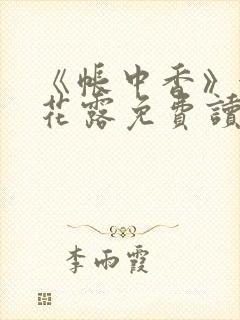 《帳中香》
花露免費讀
李雨霞